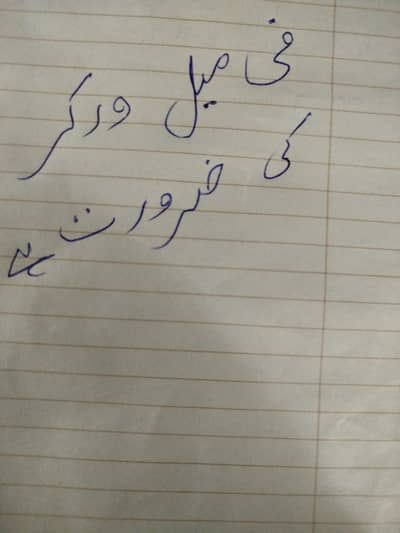 فی میل ورکر
کی ضرورت ہے